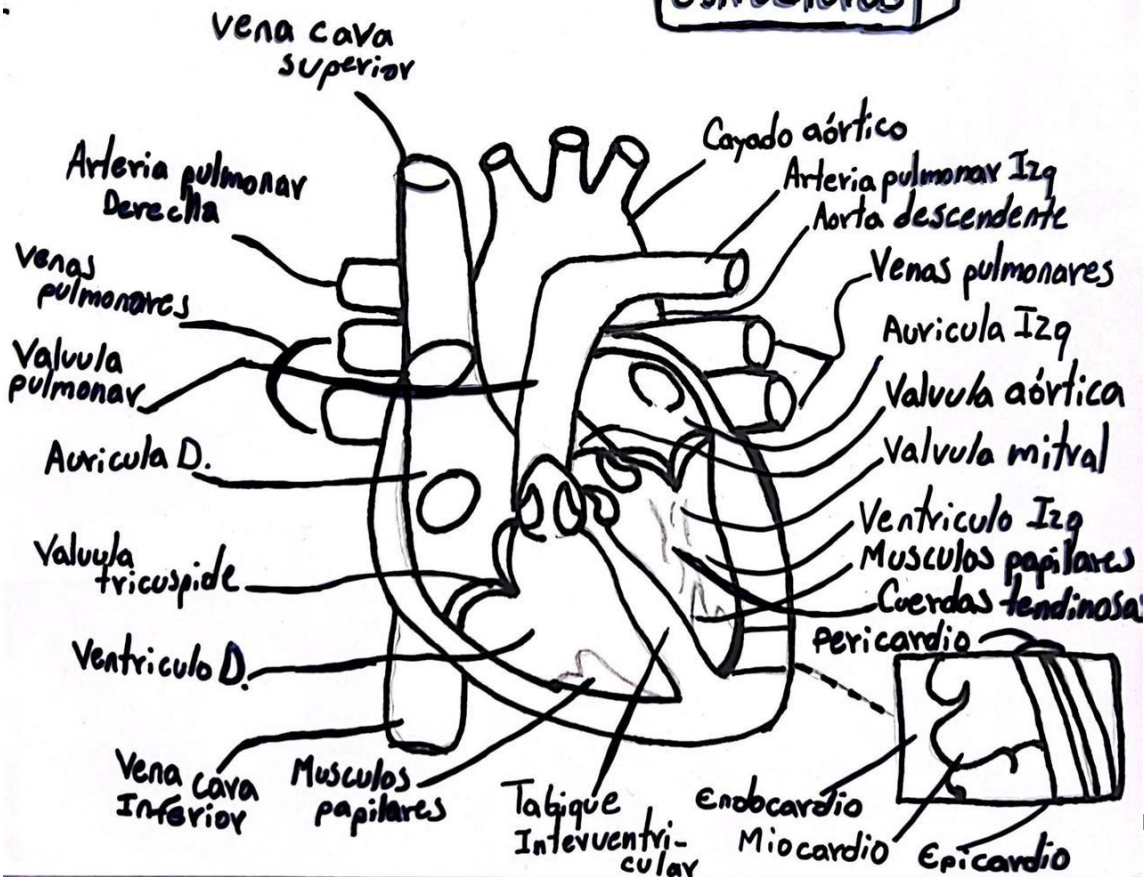 Vena cava
superior
Arteria pulmonar
Derecha
Venas
pulmonares
Valvula
pulmonar
Auricula D.
Valvula
tricuspide
Ventriculo D.
Vena cava
Inferior
Musculos
papilares
Tabique
Interventri-
cular
Cayado aórtico
Arteria pulmonar Izq
Aorta descendente
Venas pulmonares
Auricula Izq
Valvula aórtica
Valvula mitral
Ventriculo Izq
Musculos papilares
Cuerdas tendinosas
Pericardio
Endocardio
Miocardio
Epicardio